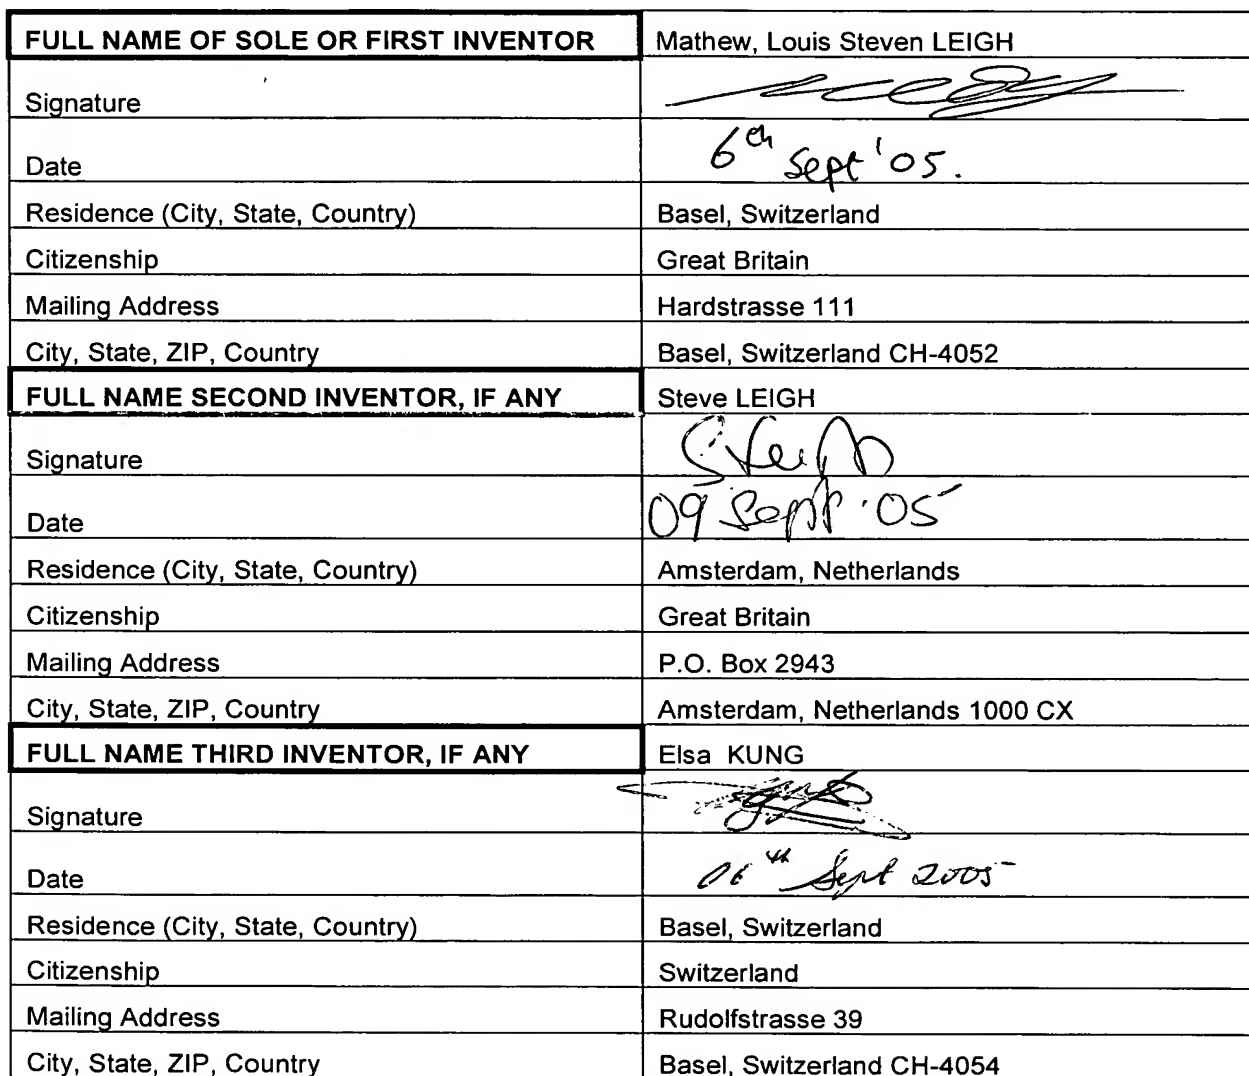 FULL NAME OF SOLE OR FIRST INVENTOR Mathew, Louis Steven LEIGH
Signature
Date 6th Sept '05.
Residence (City, State, Country) Basel, Switzerland
Citizenship Great Britain
Mailing Address Hardstrasse 111
City, State, ZIP, Country Basel, Switzerland CH-4052
FULL NAME SECOND INVENTOR, IF ANY Steve LEIGH
Signature
Date 09 Sept '05
Residence (City, State, Country) Amsterdam, Netherlands
Citizenship Great Britain
Mailing Address P.O. Box 2943
City, State, ZIP, Country Amsterdam, Netherlands 1000 CX
FULL NAME THIRD INVENTOR, IF ANY Elsa KUNG
Signature
Date 06th Sept 2005
Residence (City, State, Country) Basel, Switzerland
Citizenship Switzerland
Mailing Address Rudolfstrasse 39
City, State, ZIP, Country Basel, Switzerland CH-4054